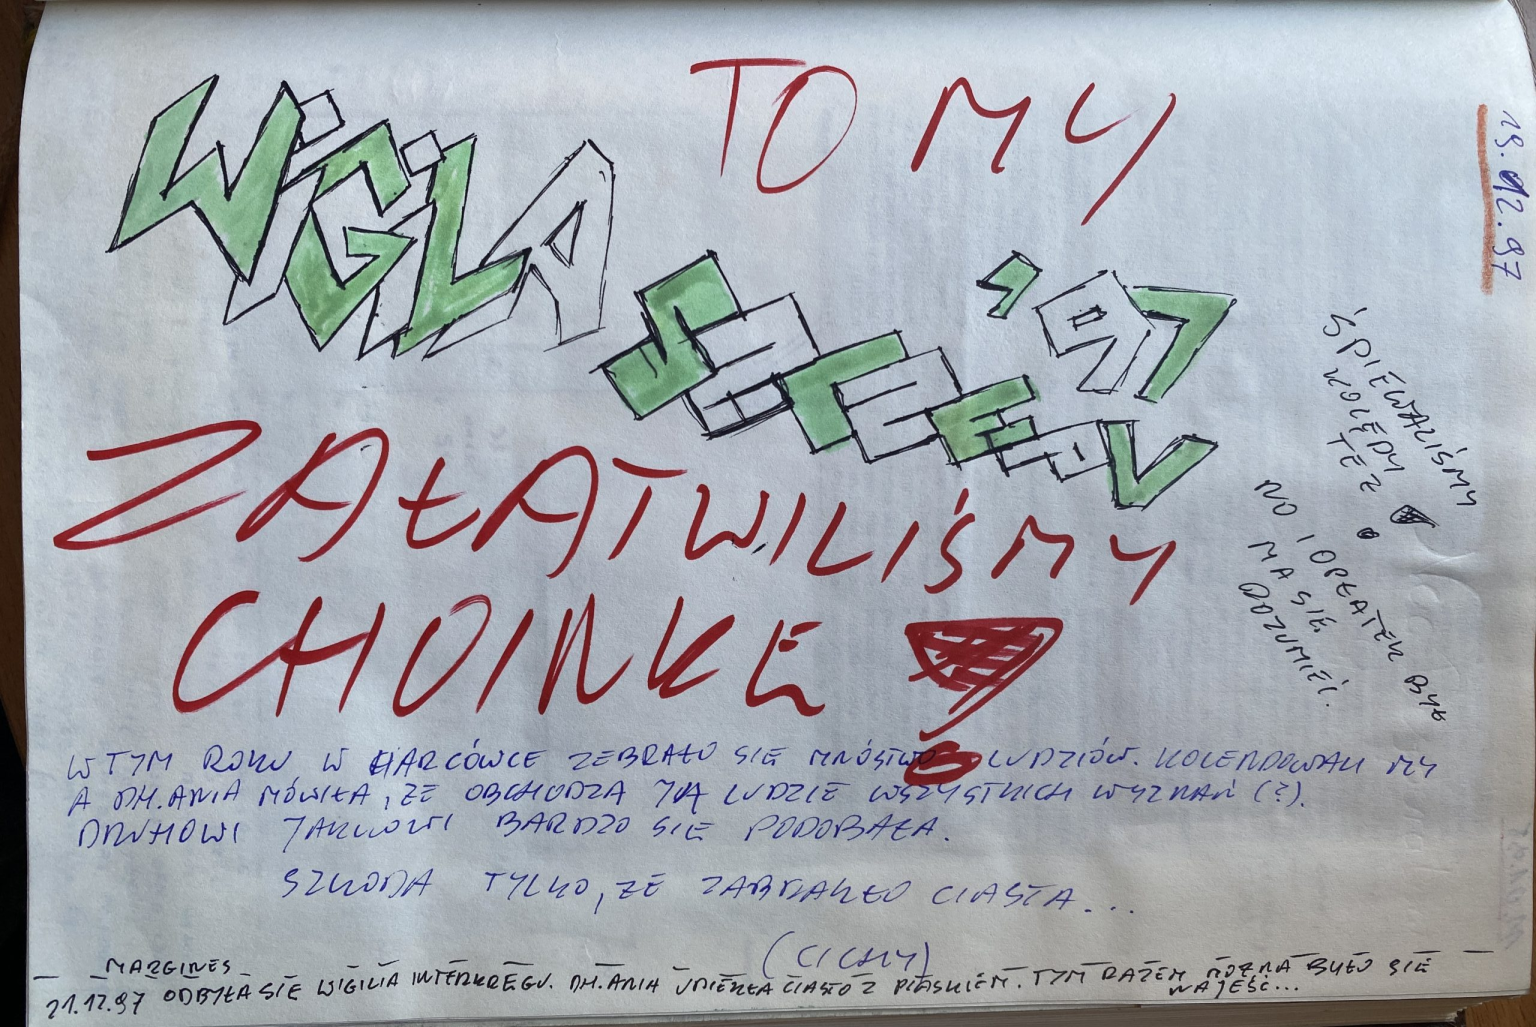 TO MY
19.12.97
WiGiLiA
SZCZEPU
'97
ZAŁATWILIŚMY
CHOINKE!
ŚPIEWALIŚMY
KOLĘDY
TEŻ!
NO I OPŁATEK BYŁ
MA SIĘ
ROZUMIEĆ.
W TYM ROKU W HARCÓWCE ZEBRAŁO SIĘ MNÓSTWO LUDZIÓW. KOLENDOWALI MY
A DH. ANIA MÓWIŁA, ŻE OBCHODZĄ JĄ LUDZIE WSZYSTKICH WYZNAŃ (?).
DRUHOWI JARKOWI BARDZO SIĘ PODOBAŁA.
SZKODA TYLKO, ŻE ZABRAKŁO CIASTA...
(CICHY)
MARGINES
21.12.97 ODBYŁA SIĘ WIGILIA INTERKRĘGU. DH. ANIA UPIEKŁA CIASTO Z PIASKIEM. TYM RAZEM MOŻNA BYŁO SIĘ
NAJEŚĆ...